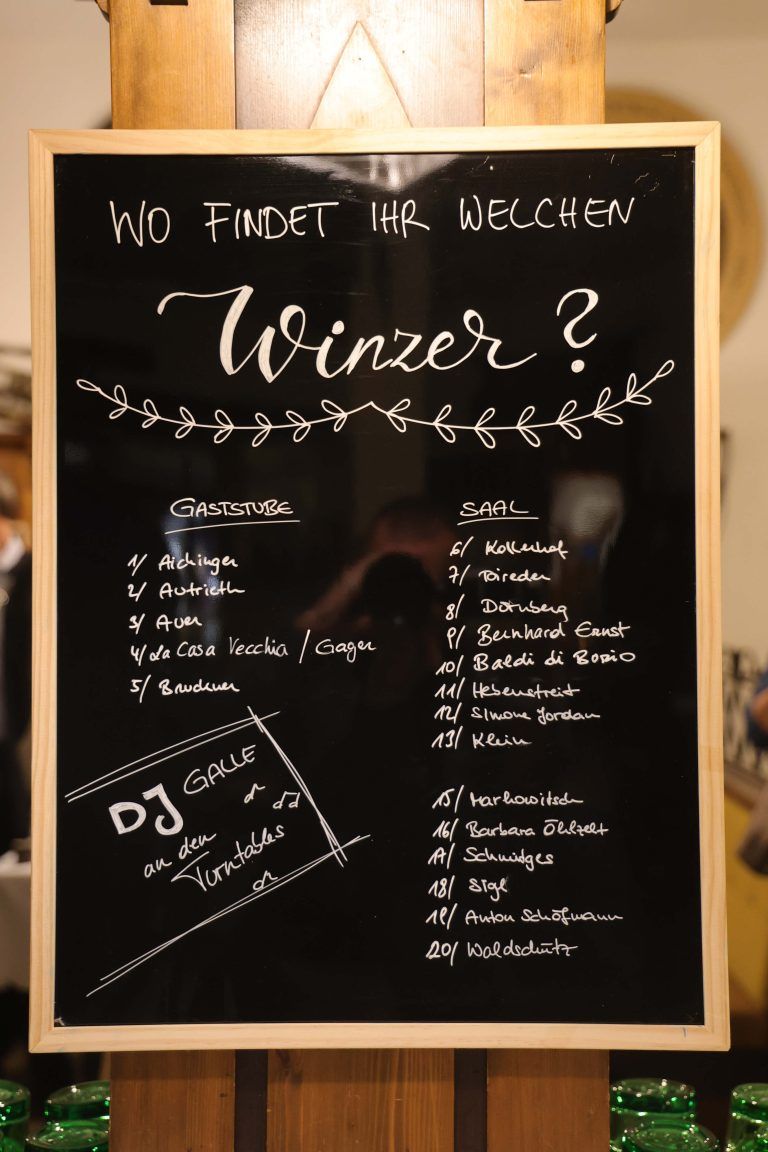 WO FINDET IHR WELCHEN
Winzer?
GASTSTUBE
1/ Aichinger
2/ Autrieth
3/ Auer
4/ La Casa Vecchia / Gager
5/ Bruckner
DJ GALLE
an den
Turntables
SAAL
6/ Kolkerhof
7/ Poireder
8/ Dornberg
9/ Bernhard Ernst
10/ Baldi di Bosio
11/ Hebenstreit
12/ Simone Jordan
13/ Klein
15/ Markowitsch
16/ Barbara Öhlzelt
17/ Schmidges
18/ Sigl
19/ Anton Schöfmann
20/ Waldschütz